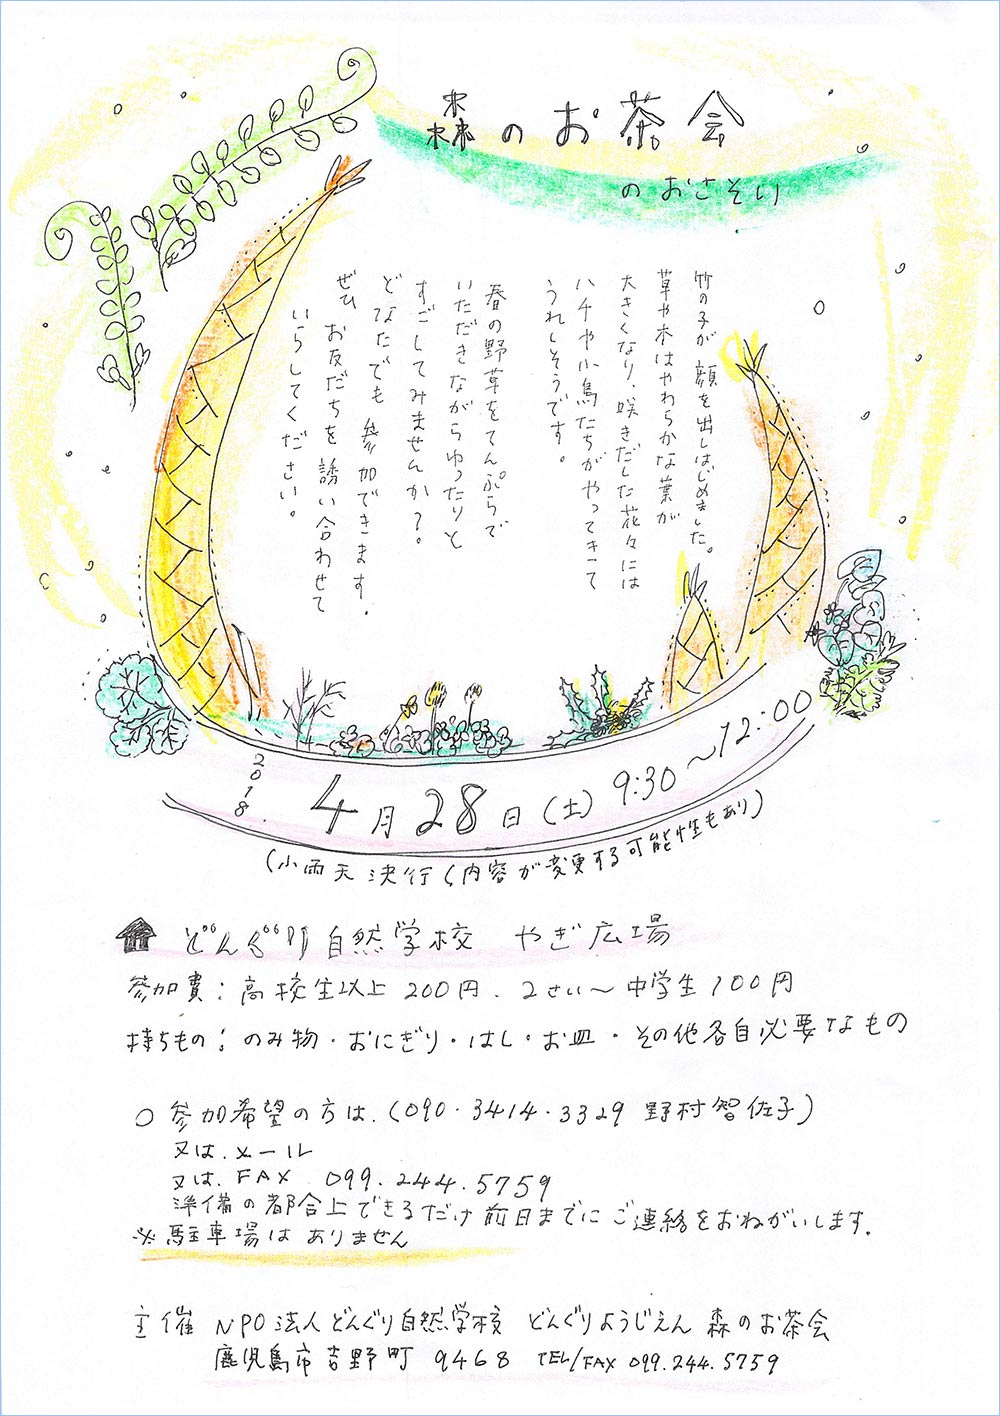 森のお茶会
のおさそい
竹の子が 顔を出しはじめました。
草や木はやわらかな葉が
大きくなり、咲きだした花々には
ハチや小鳥たちがやってきて
うれしそうです。
春の野草をてんぷらで
いただきながらゆったりと
すごしてみませんか？
どなたでも 参加できます。
ぜひ お友だちを 誘い合わせて
いらしてください。
2018.
4月28日(土) 9:30～12:00
(小雨天決行(内容が変更する可能性もあり)
どんぐり自然学校 やぎ広場
参加費：高校生以上 200円、2さい～中学生100円
持ちもの：のみ物・おにぎり・はし・お皿・その他各自必要なもの
○ 参加希望の方は、(090・3414・3329 野村智佐子)
又は、メール
又は、FAX 099.244.5759
準備の都合上できるだけ前日までにご連絡をおねがいします。
※駐車場はありません
主催 NPO法人どんぐり自然学校 どんぐりようじえん 森のお茶会
鹿児島市吉野町 9468 TEL/FAX 099.244.5759